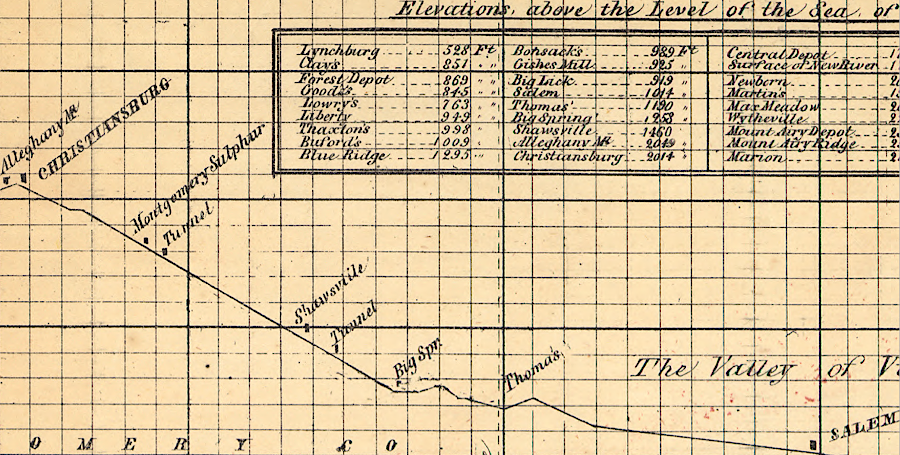 Elevations, above the Level of the Sea, of
Lynchburg 528 Ft
Clay's 851 "
Forest Depot 869 " "
Goode's 845 " "
Lowry's 763 " "
Liberty 949 " "
Thaxton's 998 "
Buford's 1009 "
Blue Ridge 1295 "
Bonsack's 989 Ft
Gishes Mill 925 "
Big Lick 919 "
Salem 1014 "
Thomas' 1190 "
Big Spring 1258 "
Shawsville 1460
Alleghany Mt 2049 "
Christiansburg 2014 "
Central Depot
Surface of New River
Newbern
Martin's
Max Meadow
Wytheville
Mount Airy Depot
Mount Airy Ridge
Marion
Alleghany Mt
CHRISTIANSBURG
Montgomery Sulphur
Tunnel
Shawsville
Tunnel
Big Spr.
Thomas'
The Valley of
SALEM
OMERY CO